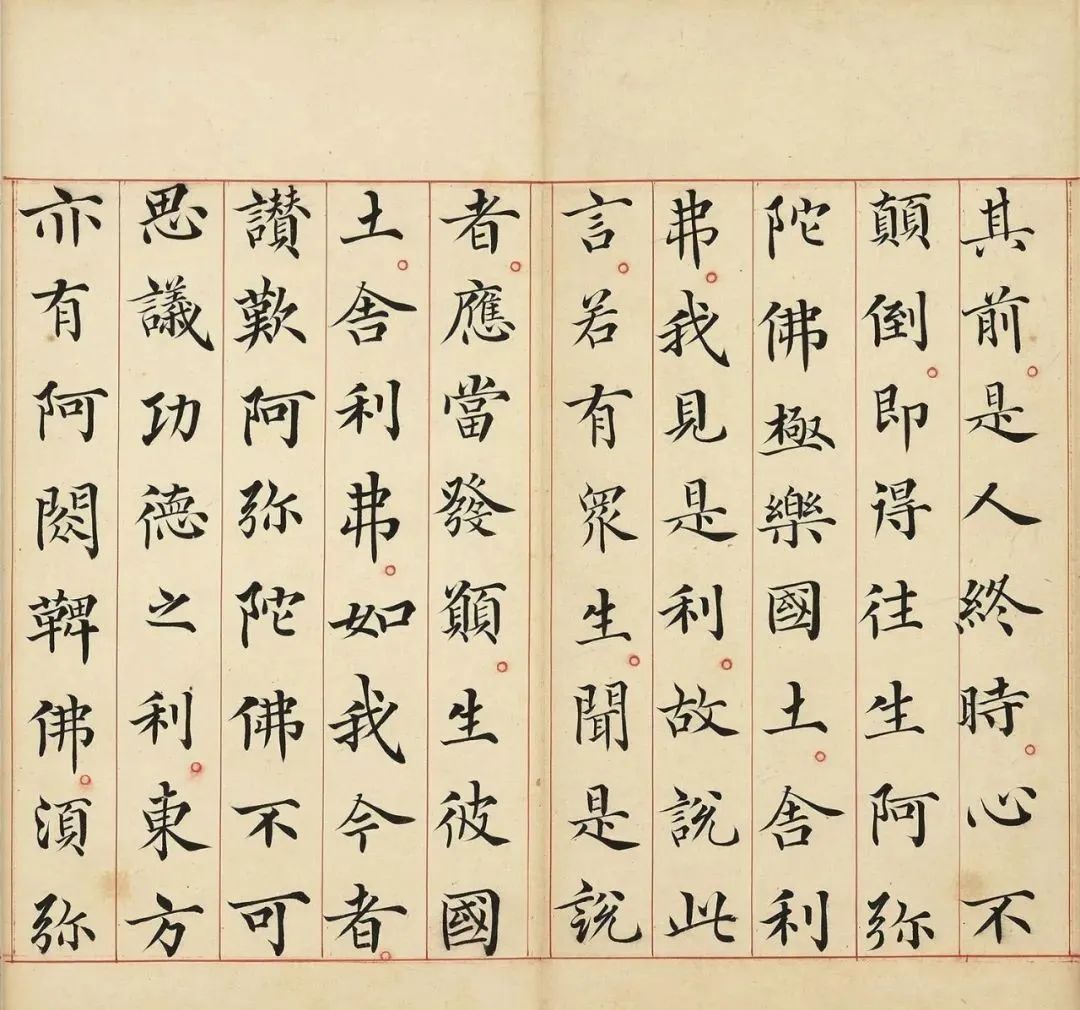 其前。是人終時。心不
顛倒。即得往生阿弥
陀佛極樂國土。舍利
弗。我見是利。故說此
言。若有眾生。聞是說
者。應當發願。生彼國
土。舍利弗。如我今者。
讃歎阿弥陀佛不可
思議功德之利。東方
亦有阿閦鞞佛。須弥